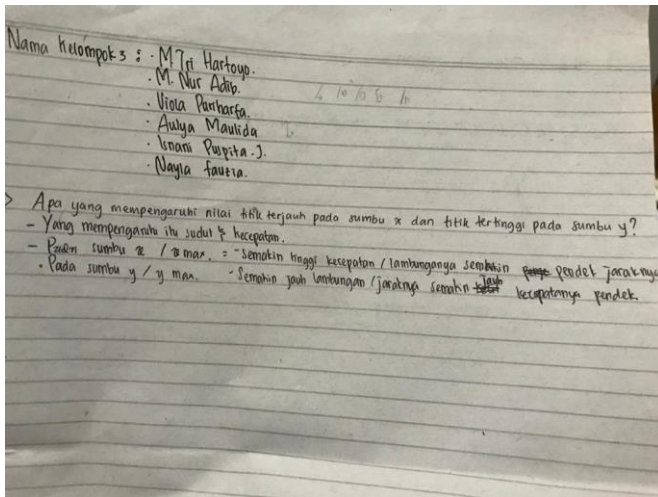 Nama Kelompok 3 : · M Tri Hartoyo.
· M. Nur Adib.
· Viola Puriharfa.
· Aulya Maulida
· Isnani Puspita. J.
· Nayla fauzia.
> Apa yang mempengaruhi nilai titik terjauh pada sumbu x dan titik tertinggi pada sumbu y?
- Yang mempengaruhi itu sudut & kecepatan.
- Pada sumbu x / x max. = - Semakin tinggi kecepatan / lambunganya semakin pendek jaraknya
· Pada sumbu y / y max. - Semakin jauh lambungan / jaraknya semakin jauh kecepatanya pendek.